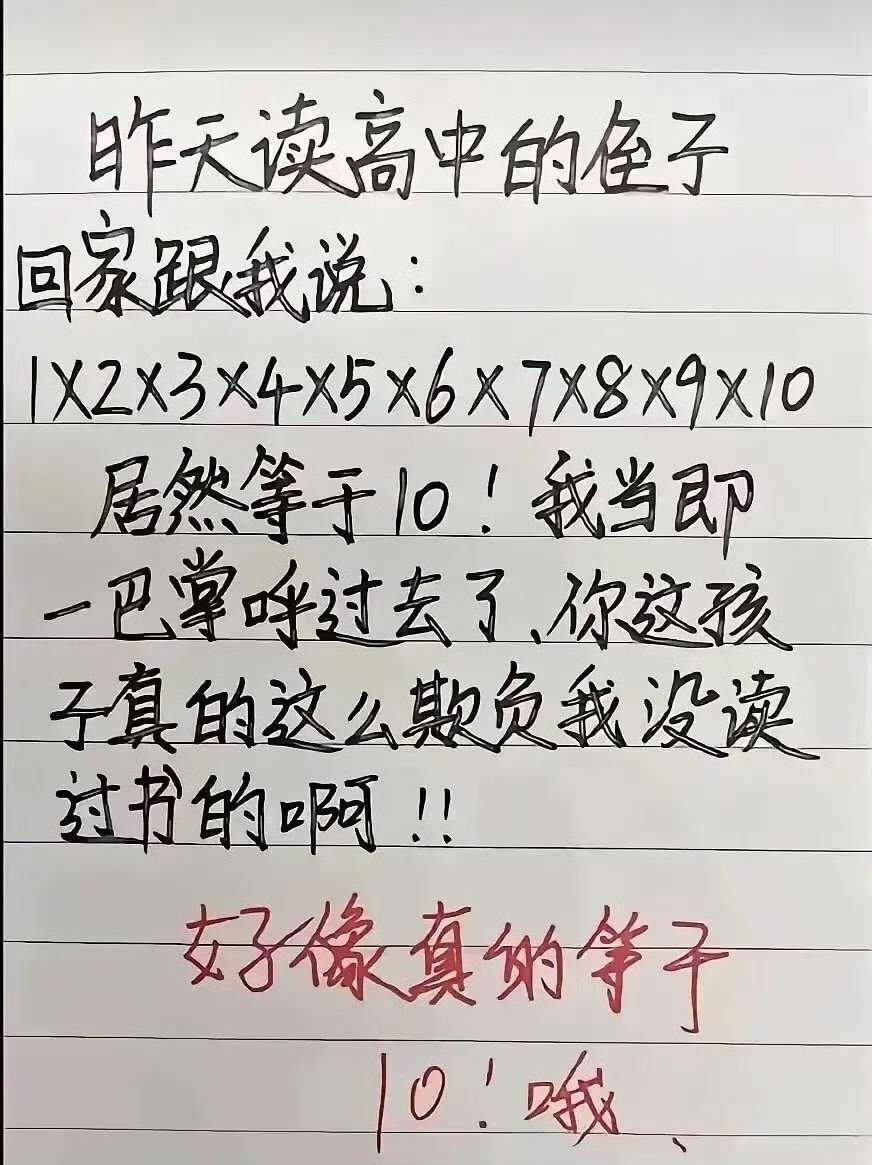 昨天读高中的侄子
回家跟我说:
1×2×3×4×5×6×7×8×9×10
居然等于10!我当即
一巴掌呼过去了、你这孩
子真的这么欺负我没读
过书的啊!!
好像真的等于
10!哦、